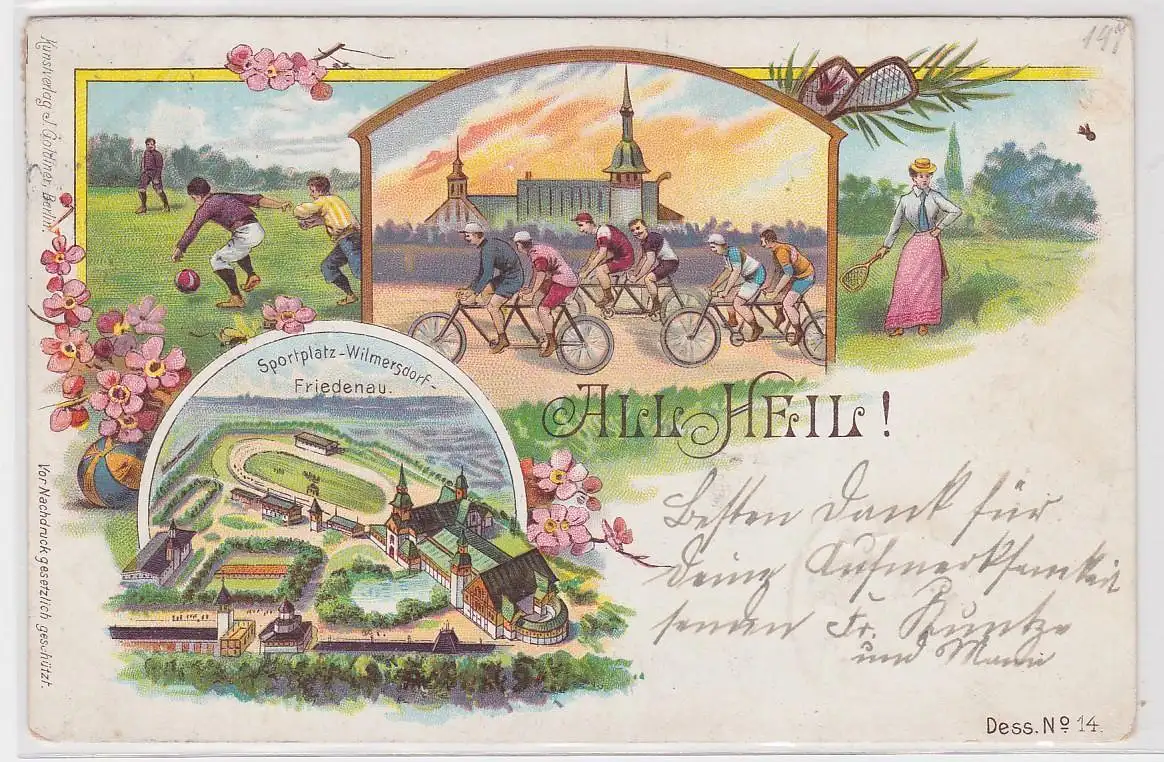 197
Kunstverlag J. Goldiner, Berlin.
Sportplatz-Wilmersdorf-
Friedenau.
ALL HEIL!
Besten Dank für
Deine Aufmerksamkeit
senden Fr. Kuntze
und Mann
Vor Nachdruck gesetzlich geschützt.
Dess. No 14.